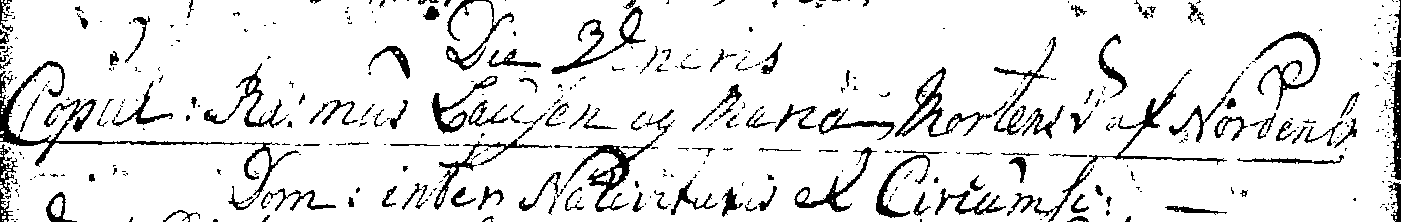 Die Veneris
Copul: Rasmus Laursen og Maria Mortensd af Nordenb
Dom: inter Nativitatis et Circumsi: